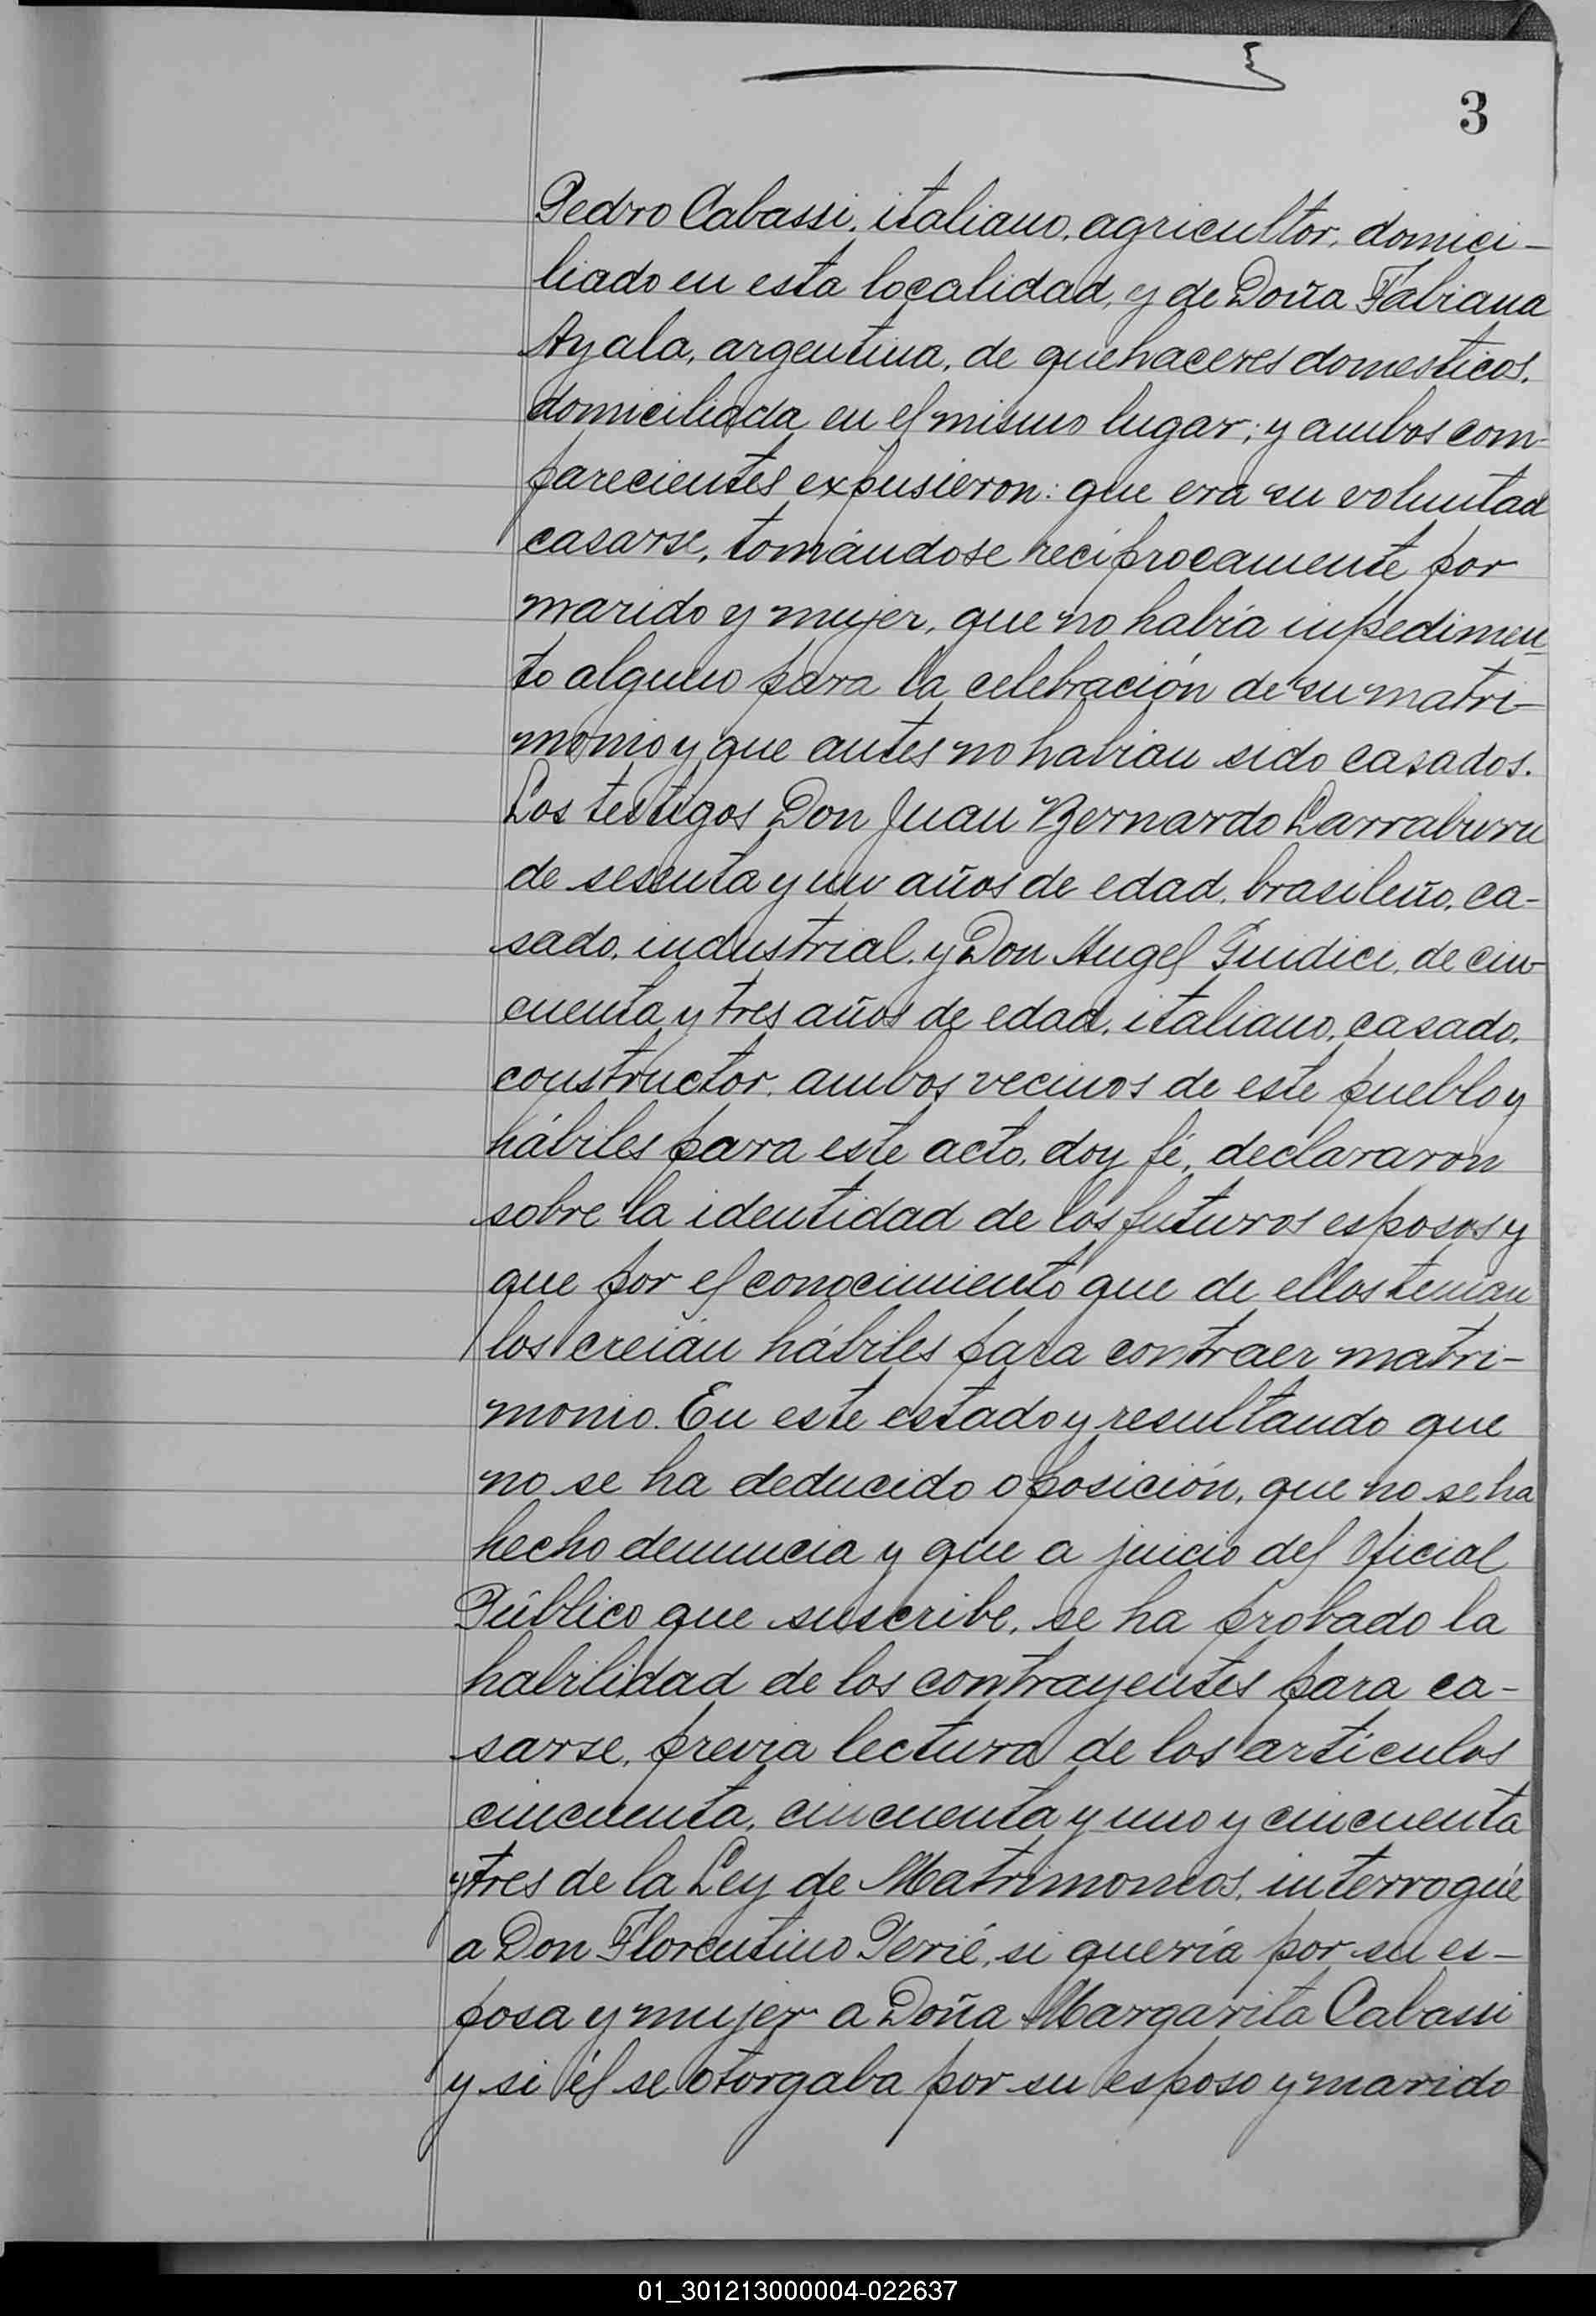 3
Pedro Cabassi, italiano, agricultor, domici-
liado en esta localidad, y de Doña Fabiana
Ayala, argentina, de quehaceres domesticos,
domiciliada en el mismo lugar; y ambos com-
parecientes expusieron: que era su voluntad
casarse, tomándose recíprocamente por
marido y mujer, que no había inpedimen-
to alguno para la celebración de su matri-
monio y que antes no habían sido casados.
Los testigos Don Juan Bernardo Larraburu
de sesenta y un años de edad, brasileño, ca-
sado, industrial, y Don Angel Guidici, de cin-
cuenta y tres años de edad, italiano, casado,
constructor, ambos vecinos de este pueblo y
hábiles para este acto, doy fé, declararon
sobre la identidad de los futuros esposos y
que por el conocimiento que de ellos tenían
los creían hábiles para contraer matri-
monio. En este estado y resultando que
no se ha deducido oposición, que no se ha
hecho denuncia y que a juicio del Oficial
Público que suscribe, se ha probado la
habilidad de los contrayentes para ca-
sarse, previa lectura de los artículos
cincuenta, cincuenta y uno y cincuenta
y tres de la Ley de Matrimonios, interrogué
a Don Florentino Perié, si quería por su es-
posa y mujer a Doña Margarita Cabassi
y si él se otorgaba por su esposo y marido
01_301213000004-022637